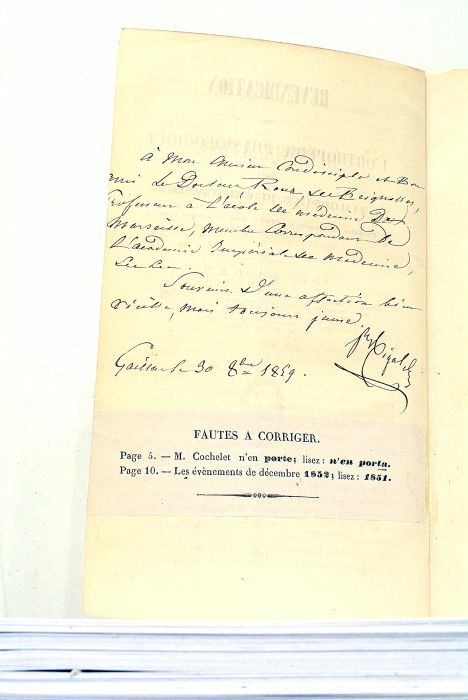 à Mon Ancien Condisciple et Bon
ami le Docteur Roux, de Brignolles,
Professeur à l'école de médecine de
Marseille, Membre Correspondant de
l'académie Impériale de médecine,
Souvenir d'une affection bien
vieille, mais toujours jeune.
Gaillac le 30 8bre 1859.
FAUTES A CORRIGER.
Page 5. — M. Cochelet n'en porte; lisez: n'en porta.
Page 10. — Les évènements de décembre 1852; lisez: 1851.